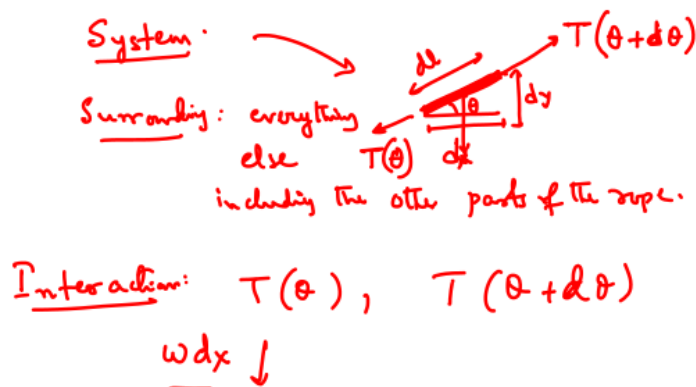 System.
T(θ+dθ)
dl
dy
θ
Surrounding: everything
else
T(θ)
dx
including the other parts of the rope.
Interaction: T(θ), T(θ+dθ)
wdx ↓